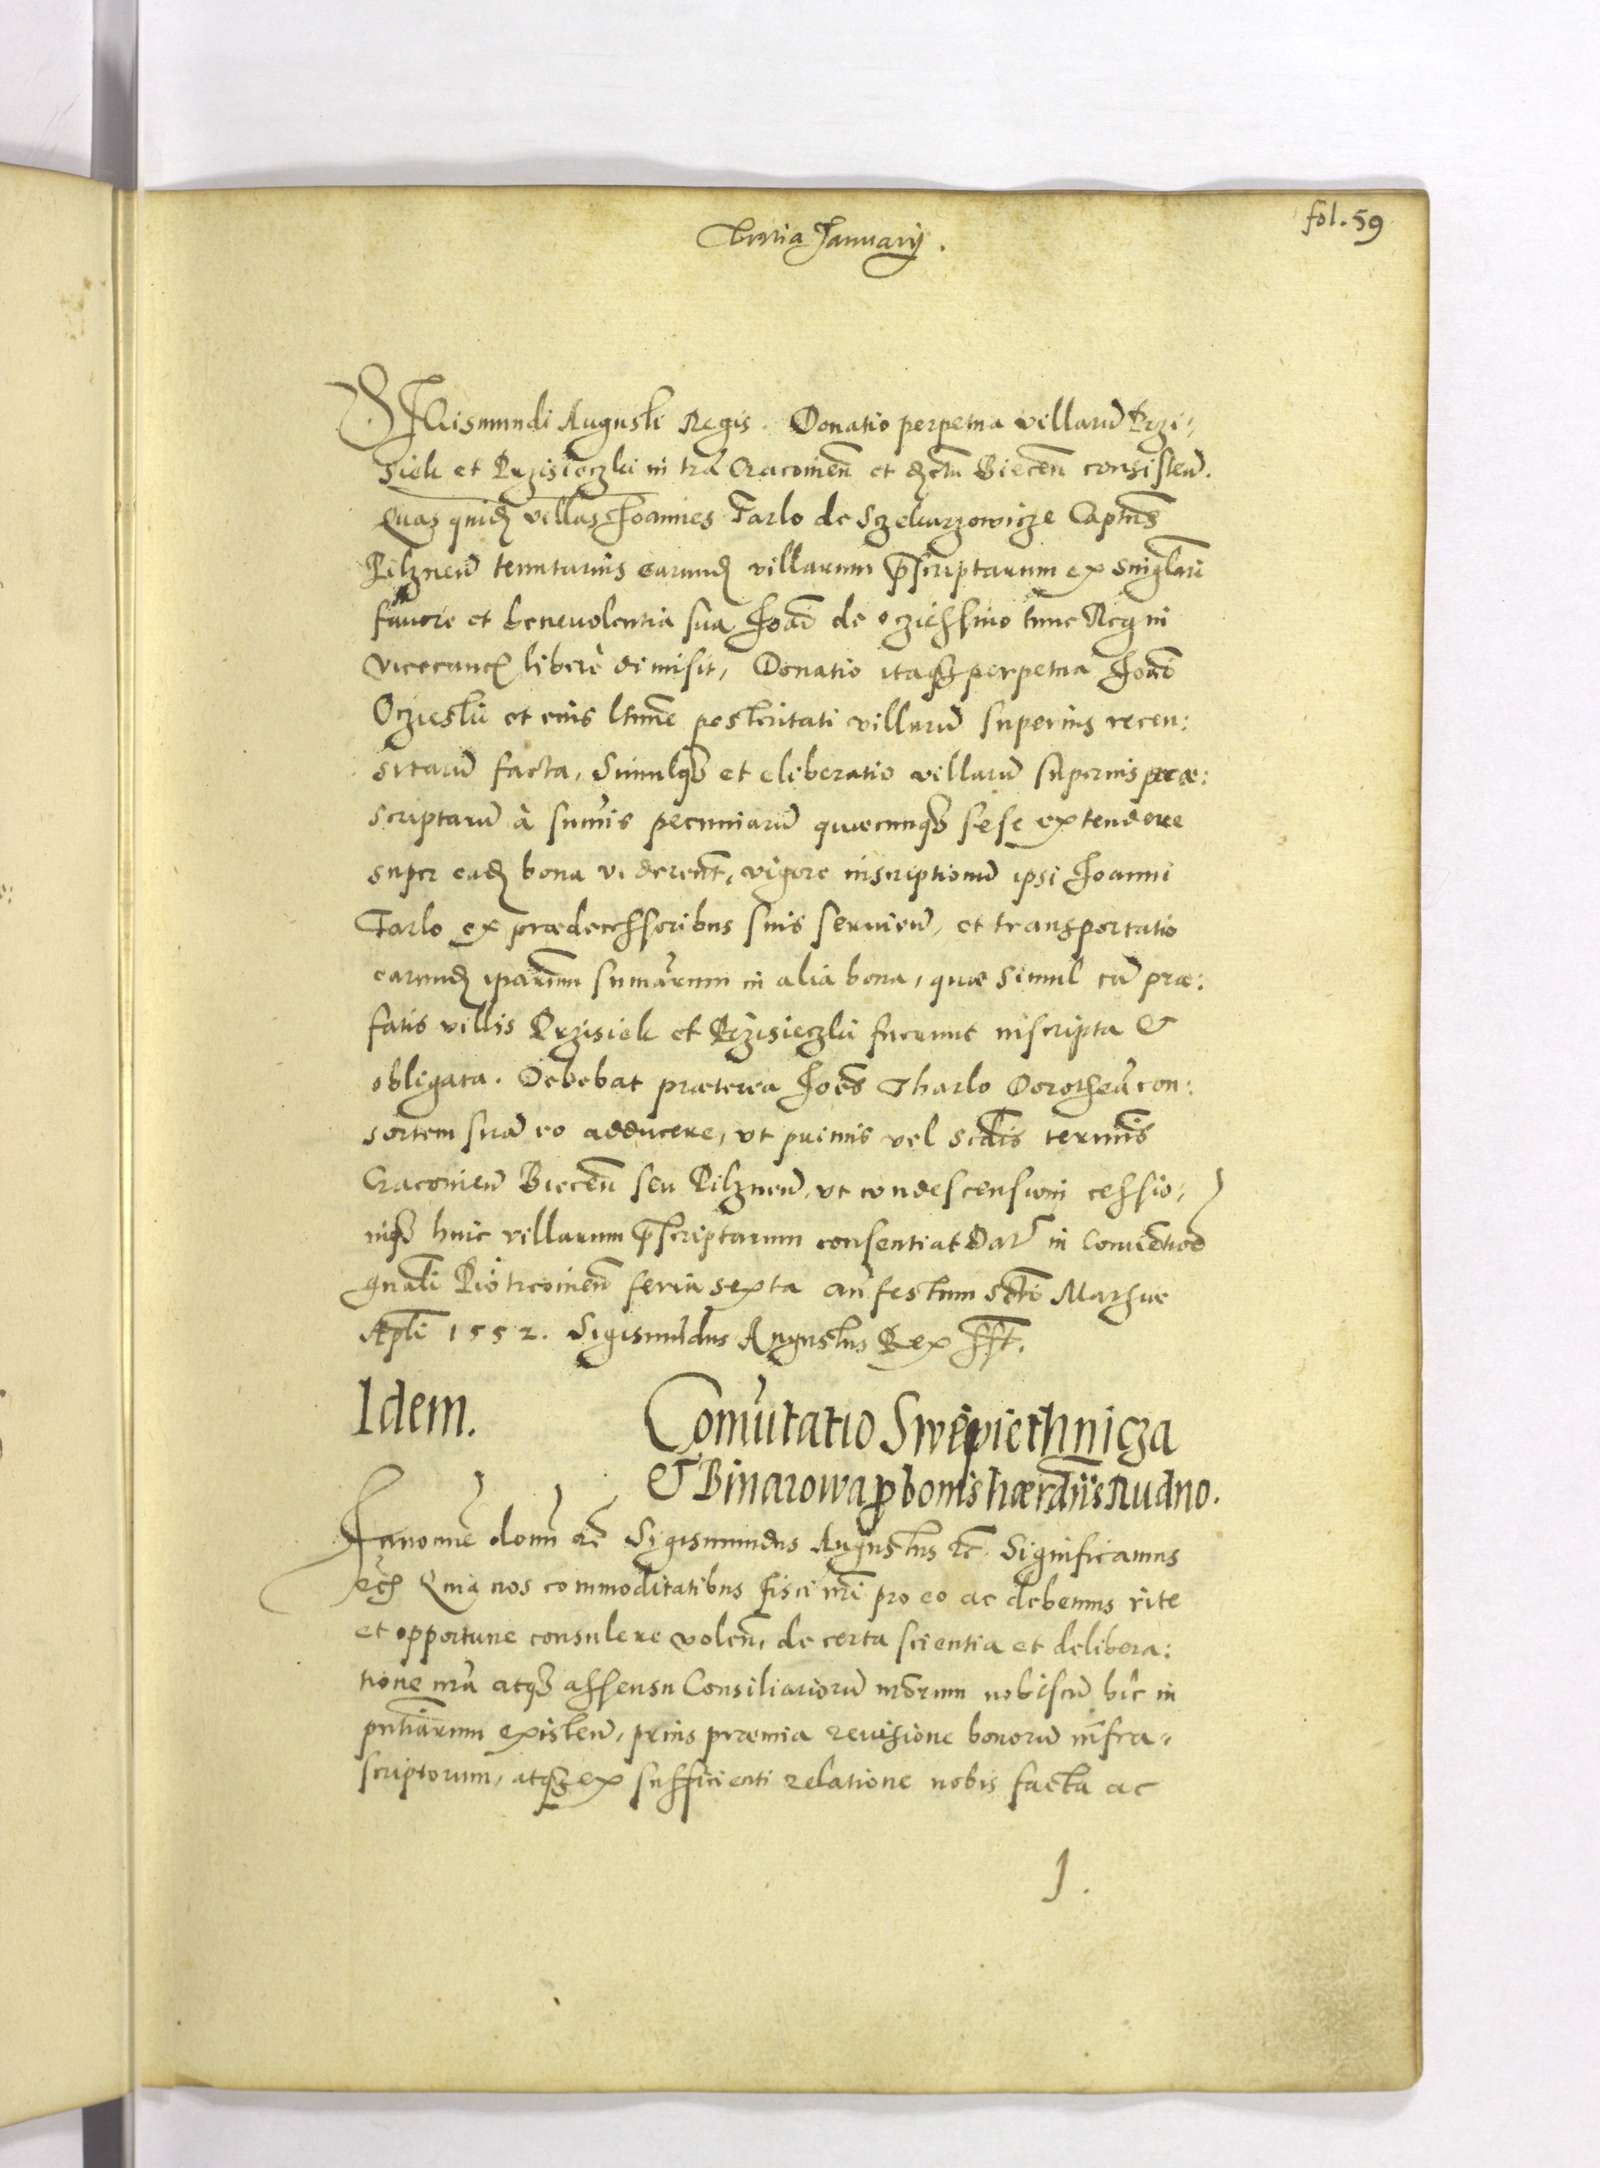 fol. 59
Tertia Januarij.
SIGismundi Augusti Regis. Donatio perpetua villarū Przi-
siek et Przisieczki in trā Cracovien̄ et dꝫctu Biecen̄ consisten̄.
Quas quidꝫ villas Joannes Tarlo de Sczekarzowicze Captn̄s
Pilznen̄ tenutarius earundꝫ villarum p̄scriptarum ex singlāri
favore et benevolentia sua Joan̄i de oczieschino tunc Regni
vicecancꝫ liberè dimisit, Donatio itaqꝫ perpetua Joan̄i
Oczieski et eius ltīme posteritati villarū superius recen:
sitarū facta, Simulqꝫ et eliberatio villarū superius præ:
scriptarū à sum̄is pecuniarū quæcunqꝫ sese extendere
super eadꝫ bona viderent̄, vigore inscriptionū ipsi Joanni
Tarlo ex prædecessoribus suis servien̄, et transportatio
earundꝫ ipārum sum̄arum in alia bona, quæ simul cū præ:
fatis villis Przisiek et Przisieczki fuerunt inscripta &
obligata. Debebat præterea Joēs Tharlo Dorotheā con:
sortem suā eo adducere, ut primis vel scdīs termīs
Cracovien̄ Biecen̄ seu Pilznen̄, ut condescensioni cessio-
niqꝫ huic villarum p̄scriptarum consentiat Dat̄ in Conventioē
gnāli Piotrcovien̄ feria sexta an̄ festum Sctī Mathiæ
Apl̄i 1552. Sigismūdus Augustus Rex sst.
Idem. Com̄utatio Swiepiethnicza
& Binarowa ꝓ bonis hærd̄ijs Rudno.
In nomīe domī etc̄ Sigismundus Augustus etc̄ Significamus
etc̄ Quia nos commoditatibus fisci nr̄i pro eo ac debemus rite
et opportune consulere volen̄, de certa scientia et delibera:
tione nr̄a atqꝫ assensu Consiliariorū nr̄orum nobiscū hîc in
pn̄tiarum existen̄, prius præmia revisione bonorū infra-
scriptorum, atqꝫ ex sufficienti relatione nobis facta ac